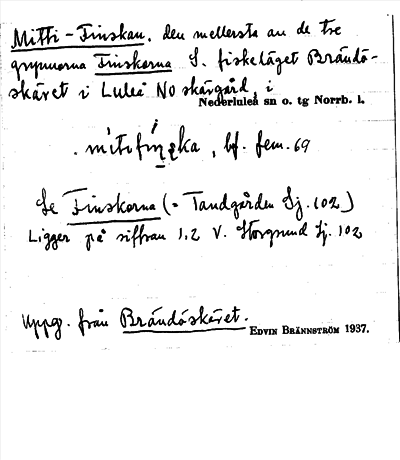 Mitti-Finskan, den mellersta av de tre
grynnorna Finskorna S. fiskeläget Brändö-
skäret i Luleå NO skärgård, i
Nederluleå sn o. tg Norrb. l.
, bf. fem. 69
Se Finskorna (= Tandgården Sj. 102)
Ligger på siffran 1,2 V. Storgrund Sj. 102
Uppg. från Brändöskäret.
EDVIN BRÄNNSTRÖM 1937.